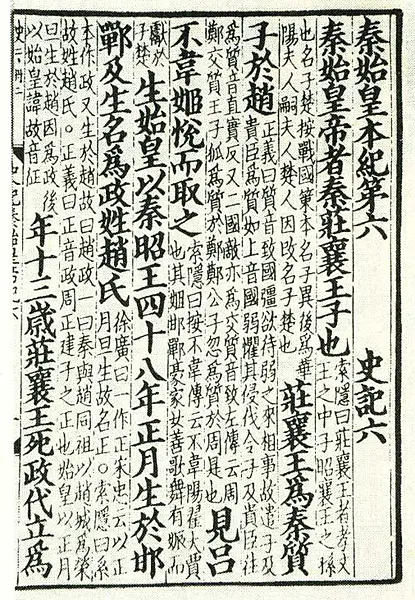 秦始皇本紀第六 史記六
秦始皇帝者秦莊襄王子也
索隱曰莊襄王者孝文
王之中子昭襄王之孫
也名子楚按戰國策本名子異後爲華
陽夫人嗣夫人楚人因改名子楚也
莊襄王爲秦質
子於趙
正義曰質音致國彊欲待弱之來相事故遣子及
貴臣爲質如上音國弱懼其侵伐令子及貴臣往
爲質音直實反又二國敵亦爲交質音致左傳云周
鄭交質王子狐爲質於鄭鄭公子忽爲質於周是也
見呂
不韋姬悅而取之
索隱曰按不韋傳云不韋陽翟大賈
也其姬邯鄲豪家女善歌舞有娠而
獻於
子楚
生始皇以秦昭王四十八年正月生於邯
鄲及生名爲政姓趙氏
徐廣曰一作正宋忠云以正
月旦生故名正〇索隱曰系
本作政又生於趙故曰趙政一曰秦與趙同祖以趙城爲榮
故姓趙氏〇正義曰正音政周正建子之正也始皇以正月
旦生於趙因爲政後
以始皇諱故音征
年十三歲莊襄王死政代立爲